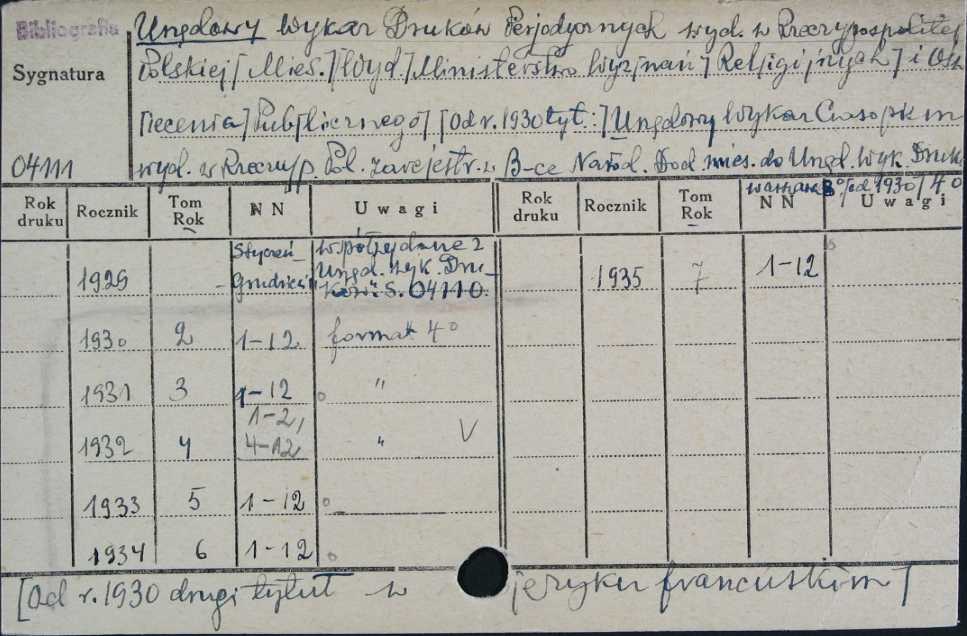 Bibliografia
Sygnatura
04111
Urzędowy Wykaz Druków Perjodycznych wyd. w Rzeczypospolitej
Polskiej [Mies.] [Wyd.] Ministerstwo Wyznań] Religijnych] i Oś-
wiecenia] Publicznego] [Od r. 1930 tyt.:] Urzędowy Wykaz Czasopism
wyd. w Rzeczyp. Pol. zarejestr. w B-ce Narod. Dod. mies. do Urzęd. Wyk. Druk.
Warszawa 8° /od 1930/ 4°
Rok druku Rocznik Tom Rok NN Uwagi Rok druku Rocznik Tom Rok NN Uwagi
1929 Styczeń-Grudzień współwydane z Urzęd. Wyk. Dru-ków: S. 04110. 1935 7 1-12
1930 2 1-12 format 4°
1931 3 1-12 "
1932 4 1-2, 4-12, " V
1933 5 1-12
1934 6 1-12
[Od r. 1930 drugi tytuł w języku francuskim]